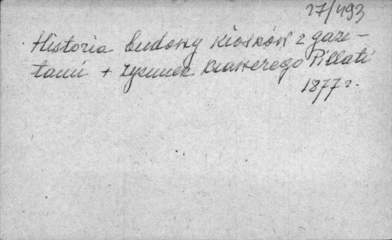 27/493
Historia budowy kiosków z gaze-
tami + rysunek Ksawerego Pillati
1877 r.